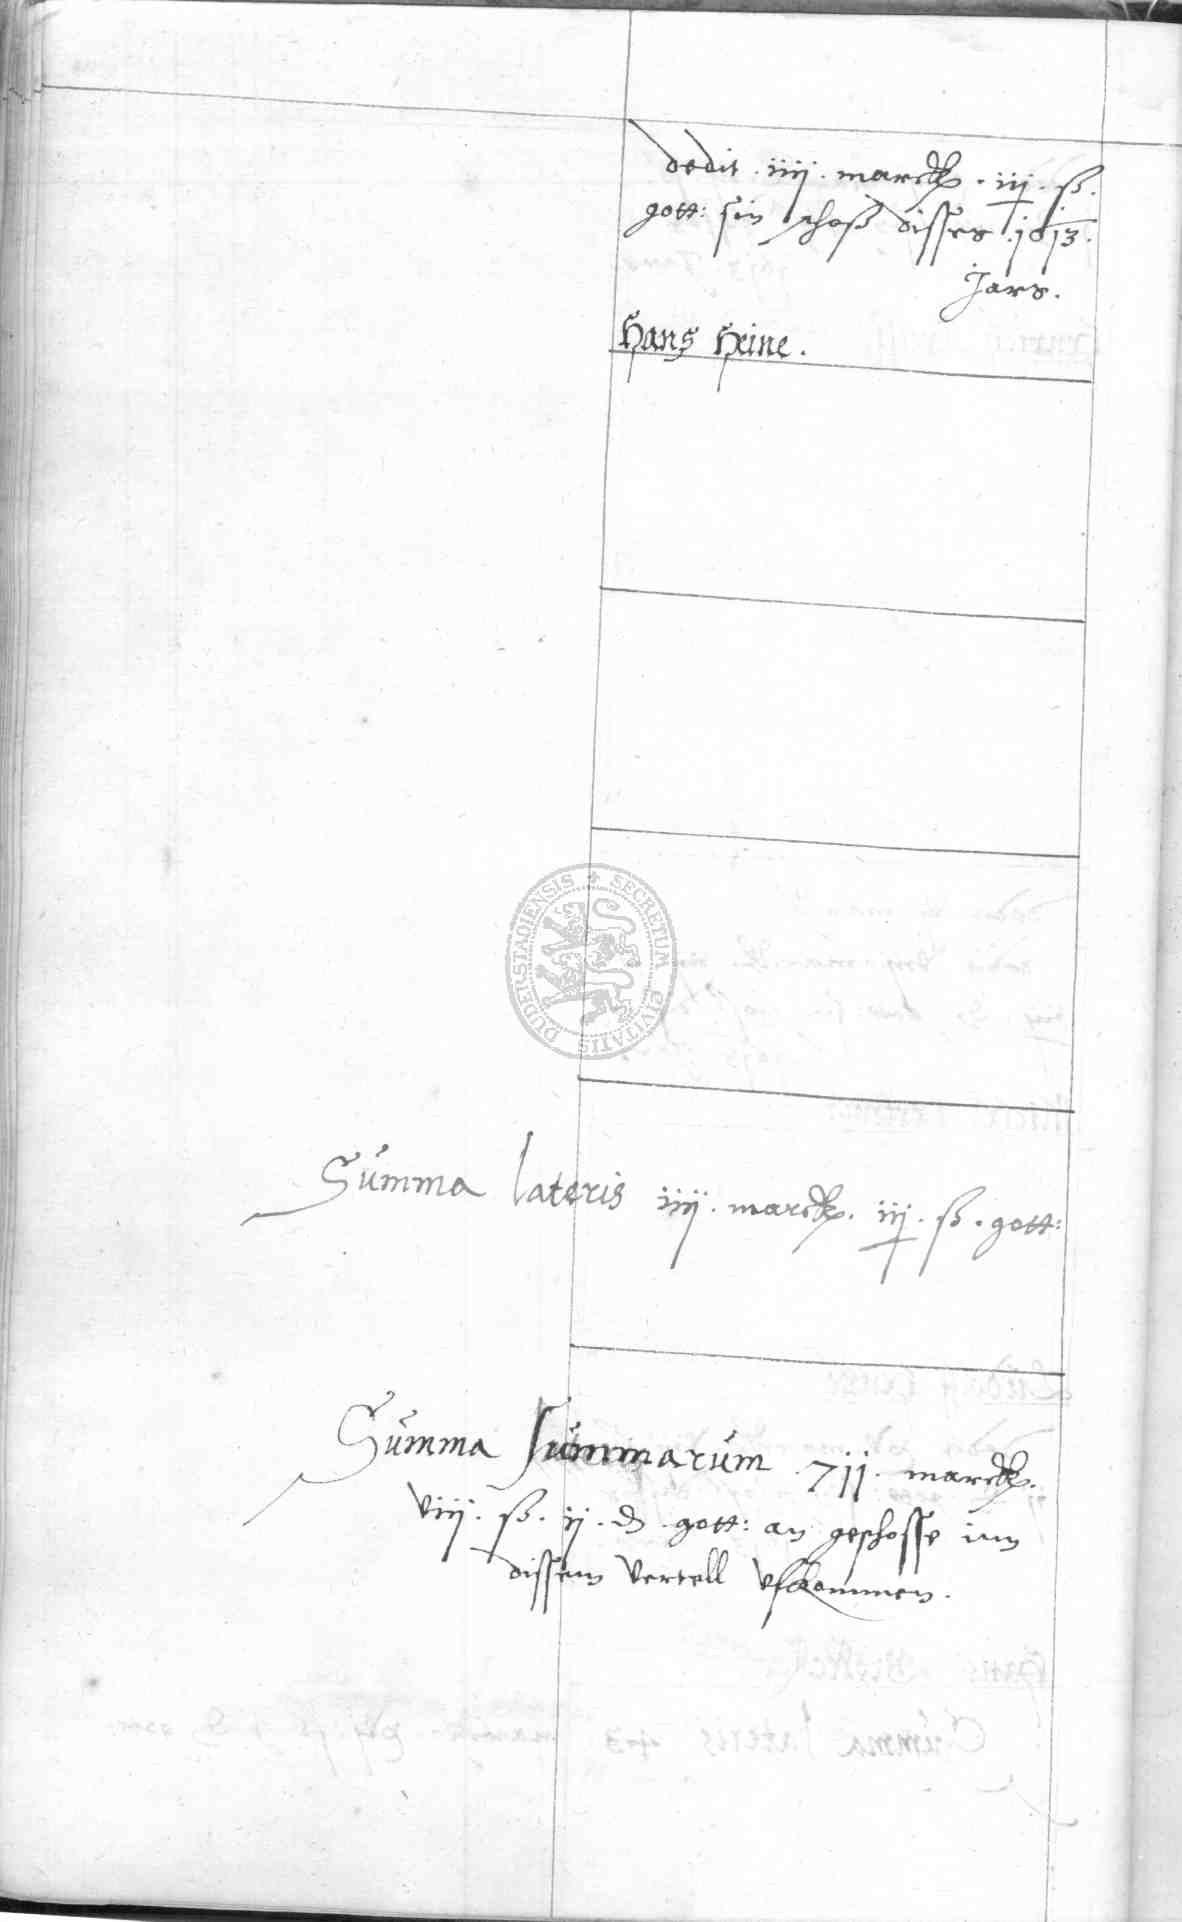 dedit . iiij . marck . iij . ß .
gott: sin schoß disses .1613.
Jars.
Hans Heine .
DUDERSTADIENSIS + SECRETUM CIVITATIS
Summa lateris iiij . marck . iij . ß . gott:
Summa summarum . 711 . marck .
viij . ß . ij . d . gott: an geschosse inn
dissem vertell ufkommen .